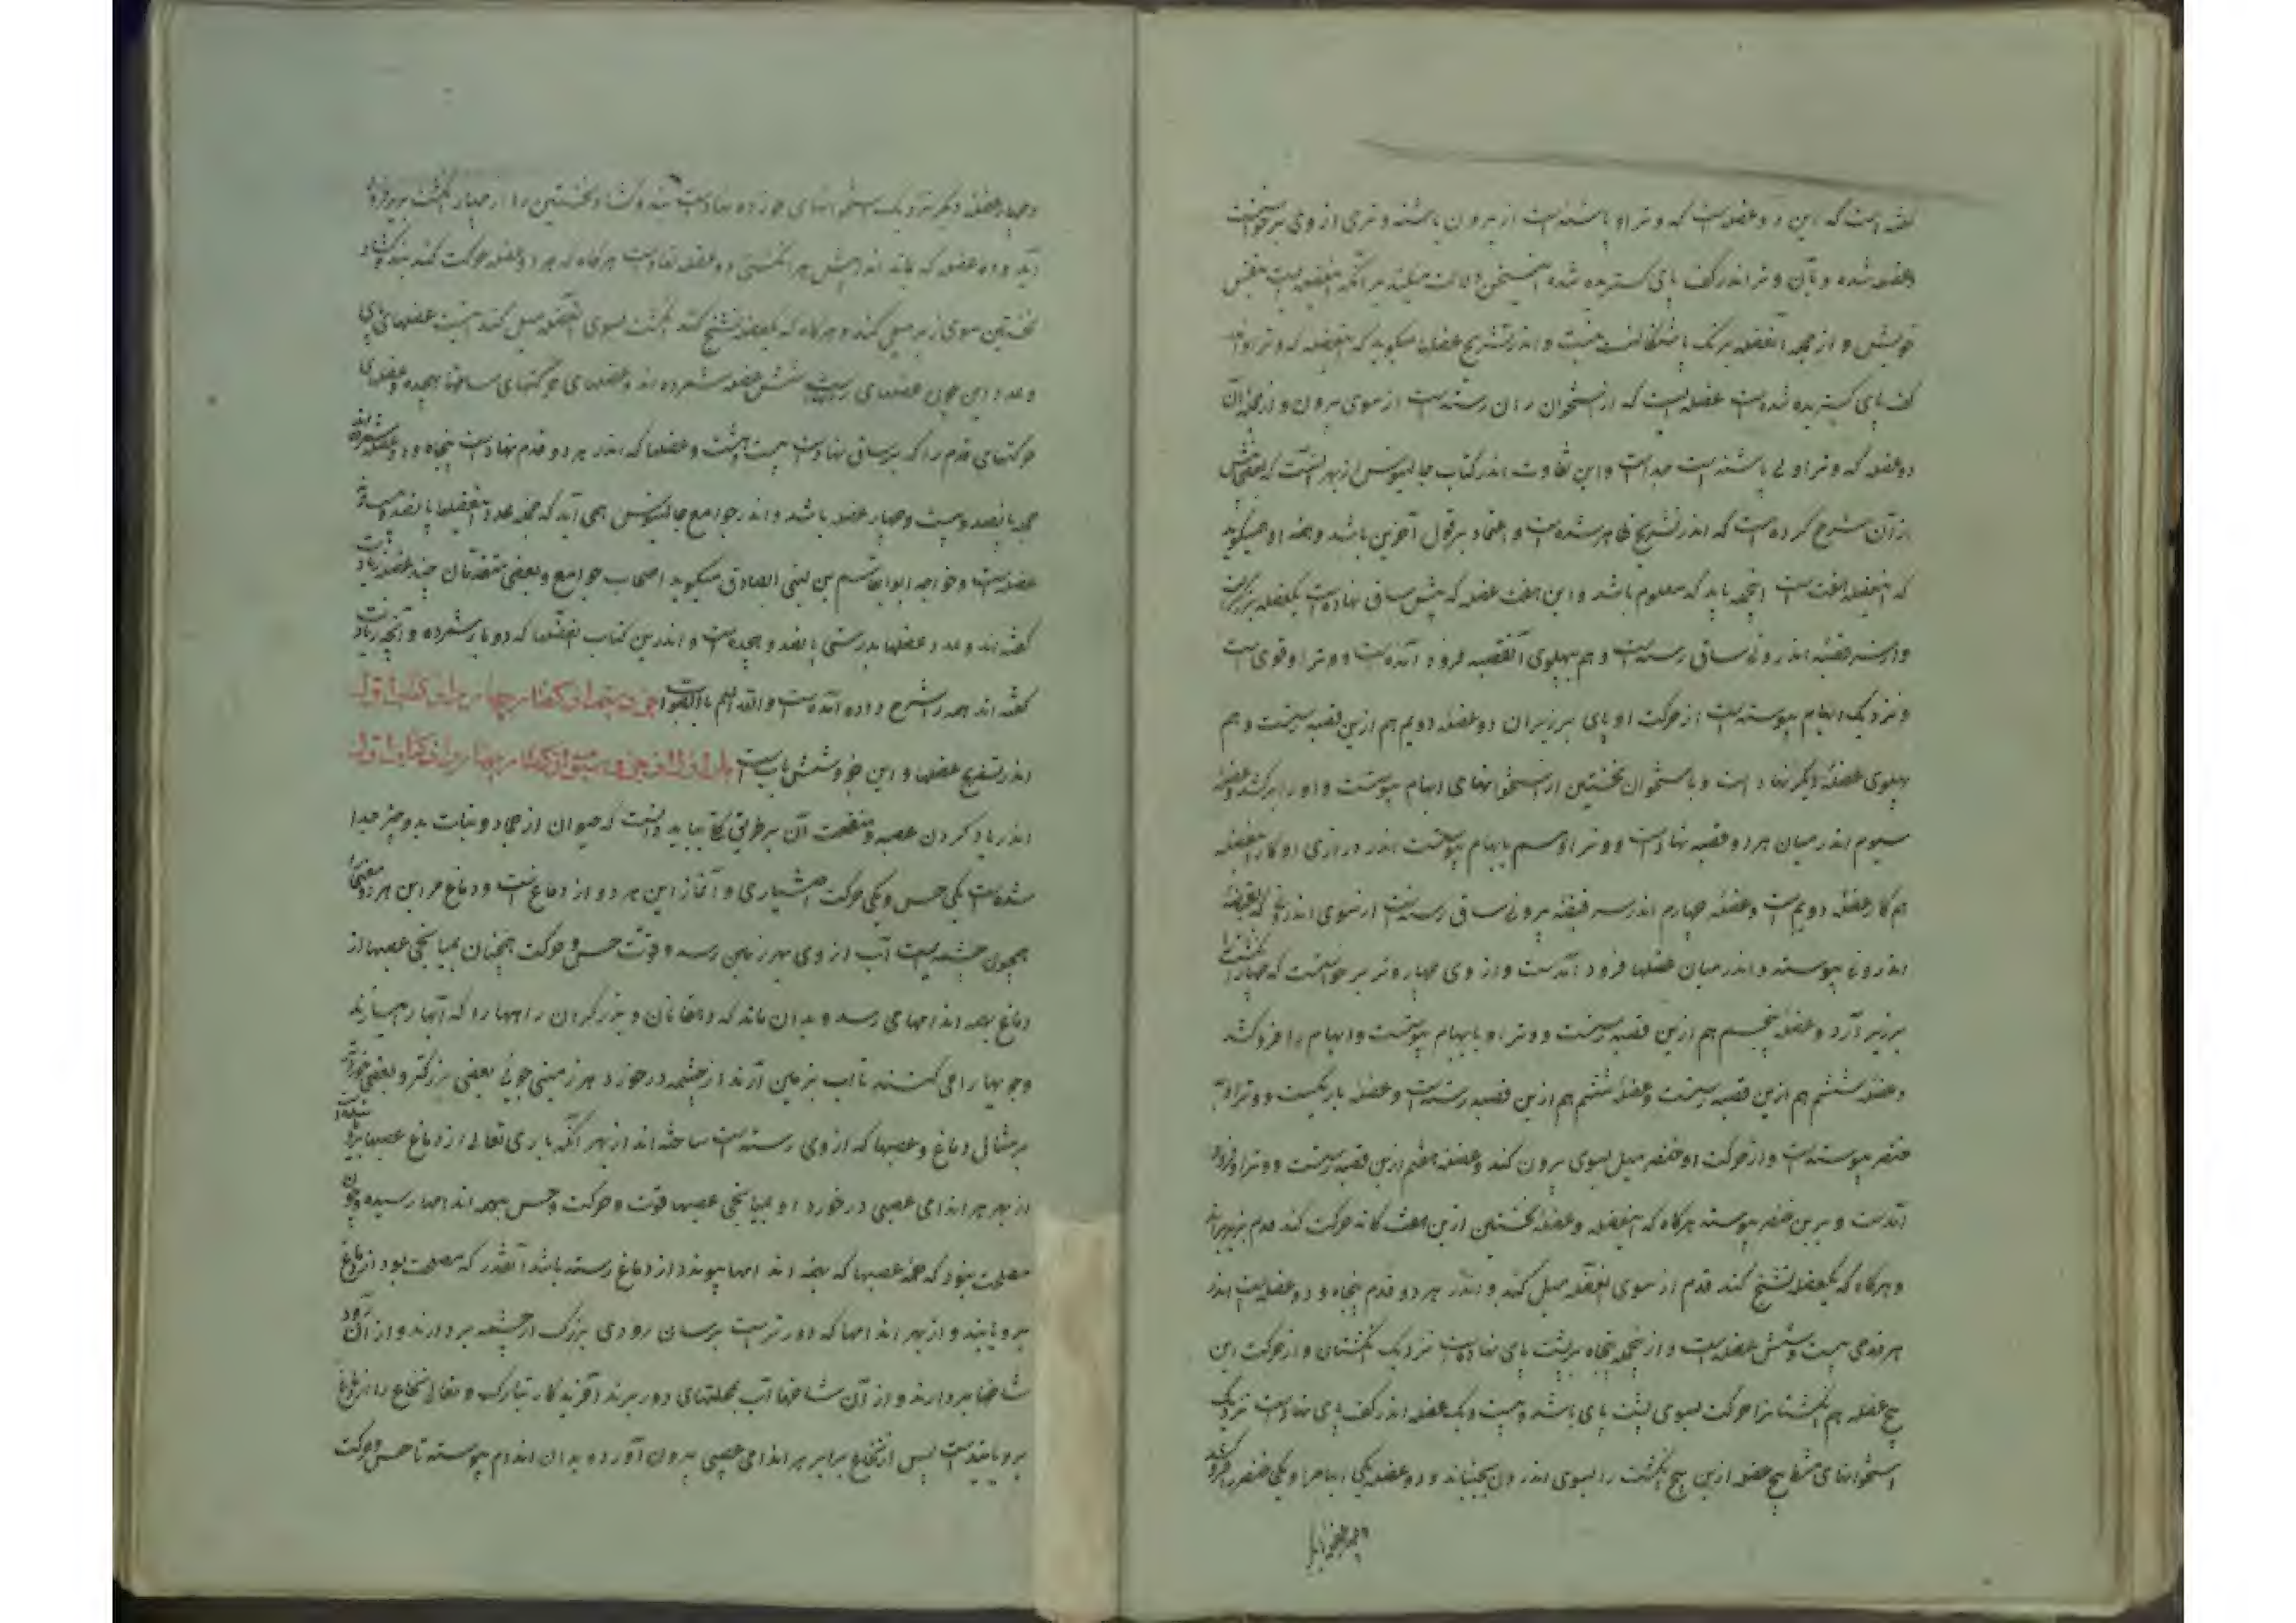 گفته است که این دو عضله است که وتر او باشنه است از بیرون باشنه وتری از وی برخواست
عضله شده و بآن وتر اندر کف پای گستریده شده این سخن دلالت میکند بر آنکه این عضله است بنفس
خویش و از جمله آن عضله بزرگ باشکافته نیست و اندر تشریح عضل میگوید که این عضله که وتر او از
کف پای گستریده شده است عضله ایست که از استخوان ران رسته است از سوی بیرون و از جمله آن
دو عضله که وتر او بی باشنه است جداست و این تفاوت اندر کتاب جالینوس از بهر آنست که بعضی پیش
از آن شرح کرده است که اندر تشریح ظاهر شده است و اعتماد بر قول آخرین باشد و همه او میگوید
که این عضله هفت است اینهمه باید که معلوم باشد و این هفت عضله که پیش ساق نهاده است یکعضله بزرگست
و از سر قصبه اندرونی ساق رسته است و هم پهلوی آن قصبه فرود آمده است و وتر او قوی است
و نزدیک ابهام پیوسته است از حرکت او پای برزبران دو عضله دویم هم ازین قصبه رسته است و هم
پهلوی عضله دیگر نهاده است و باستخوان نخستین از استخوانهای ابهام پیوسته است و او را برکشد و عضله
سیوم اندر میان هر دو قصبه نهاده است و وتر او هم بابهام پیوسته است اندر درازی او کار این عضله
هم کار عضله دویم است و عضله چهارم اندر سر قصبه بیرونی ساق رسته است از سوی اندرونی که بقصبه
اندرونی پیوسته و اندر میان عضلها فرود آمده است و از وی چهار وتر برخواسته است که چهار انگشت را
برزبر آرد و عضله پنجم هم ازین قصبه رسته است و وتر او بابهام پیوسته است و ابهام را فرو کشد
و عضله ششم هم ازین قصبه رسته است و عضله ششم هم ازین قصبه رسته است و عضله باریکست و وتر او به
خنصر پیوسته است و از حرکت او خنصر میل بسوی بیرون کند و عضله هفتم ازین قصبه رسته است و وتر او فرود
آمده است و برین خنصر پیوسته هرگاه که این عضله و عضله نخستین ازین هفت گانه حرکت کند قدم برزبر آید
و هرگاه که یکعضله تشنج کند قدم از سوی آن عضله میل کند و اندر هر دو قدم پنجاه و دو عضله است اندر
هر قدمی بیست و شش عضله است و از جمله پنجاه بر پشت پای نهاده است نزدیک انگشتان و از حرکت این
پنج عضله هم انگشتانرا حرکت بسوی پشت پای باشد و بیست و یک عضله اندر کف پای نهاده است نزدیک
استخوانهای مشط پنج عضله ازین پنج انگشت را بسوی اندرون بجنباند و دو عضله یکی ابهام را و یکی خنصر را فرو کشد
و چهار عضله دیگر نزدیک استخوانهای خورده نهاده است بند و کشاد نخستین را از چهار انگشت برزبر فرود
آید و ده عضله که ماند اندر پیش هر انگشتی دو عضله نهاده است هرگاه که هر دو عضله حرکت کنند بند و کشاد
نخستین سوی زبر میل کند و هرگاه که یکعضله تشنج کند انگشت بسوی آن عضله میل کند اینست عضلهای پای
و عدد این چون عضلهای دست شش عضله شمرده اند و عضلهای حرکتهای ساقها هیجده و عضلهای
حرکتهای قدم را که بر ساق نهاده است بیست و هشت و عضلها که اندر هر دو قدم نهاده است پنجاه و دو عضله شمرده اند
جمله پانصد و بیست و چهار عضله باشد و اندر جوامع جالینوس همی آید که جمله عدد عضلها پانصد و
عضله است و خواجه ابوالقاسم بن ابی الصادق میگوید اصحاب جوامع و بعضی متقدمان چند عضله زیادت
گفته اند و عدد عضلها بدرستی پانصد و هیجده است و اندرین کتاب بعضلها که دو بار شمرده و آنچه زیادت
گفته اند همه را شرح داده آمده است والله اعلم بالصواب جزو پنجم از گفتار چهارم از کتاب اول
اندر تشریح عصبها و این جزو شش باب است باب اول از جزو پنجم از گفتار چهارم از کتاب اول
اندر یاد کردن عصب و منفعت آن بر طریق کلی بباید دانست که حیوان از جماد و نبات بدو چیز جدا
شده است یکی حس و یکی حرکت اختیاری و آغاز این هر دو از دماغ است و دماغ مر این هر دو معنی را
همچون چشمه ایست آب از وی بهر زمین رسد و قوت حس و حرکت همچنان بمیانجی عصبها از
دماغ بهمه اندامها می رسد و بدان ماند که دهقانان و بزرگران راهها را که آبها را میسازند
و جویها را می کنند تا آب بزمین آرند از چشمه در خورد هر زمینی جوئی بعضی بزرگتر و بعضی خوردتر
بر مثال دماغ و عصبها که از وی رسته است ساخته اند از بهر آنکه باری تعالی از دماغ عصبها
از بهر هر اندامی عصبی در خورد او بمیانجی عصبها قوت و حرکت و حس بهمه اندامها رسیده و چون
مصلحت نبود که جمله عصبها که بهمه اندامها پیوندد از دماغ رسته باشد آنقدر که مصلحت بود از دماغ
برویانید و از بهر اندامها که دورترست برسان رودی بزرگ از چشمه بردارند و از آن رود
شاخها بردارند و از آن شاخها آب بمحلتهای دور برند آفریدگار تبارک و تعالی نخاع را از دماغ
برویانیده است پس از نخاع برابر هر اندامی عصبی بیرون آورده بدان اندام پیوسته تا حس و حرکت